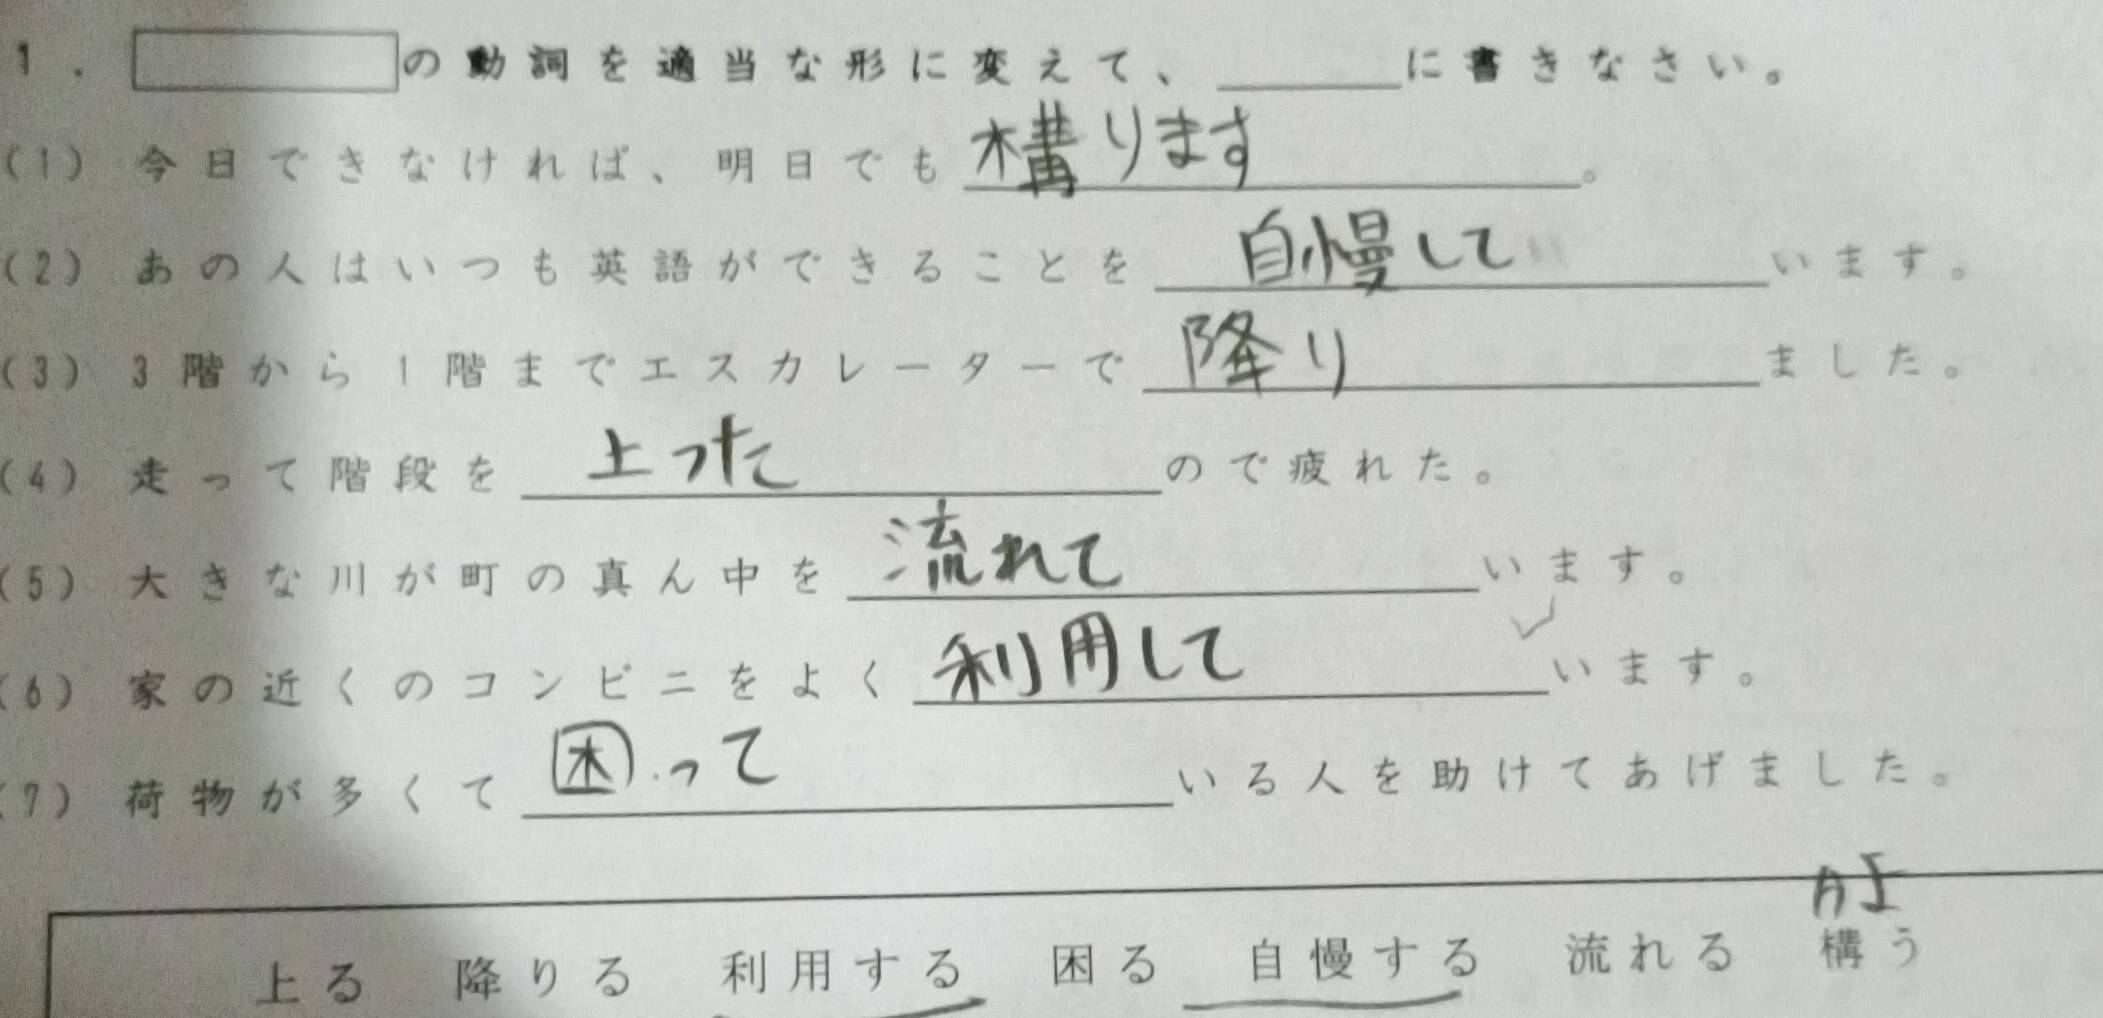 1. の動詞を適当な形に変えて、______に書きなさい。
(1) 今日できなければ、明日でも構ります。
(2) あの人はいつも英語ができることを自慢しています。
(3) 3階から1階までエスカレーターで降りました。
(4) 走って階段を上ったので疲れた。
(5) 大きな川が町の真ん中を流れています。
(6) 家の近くのコンビニをよく利用しています。
(7) 荷物が多くて困っている人を助けてあげました。
上る 降りる 利用する 困る 自慢する 流れる 構う